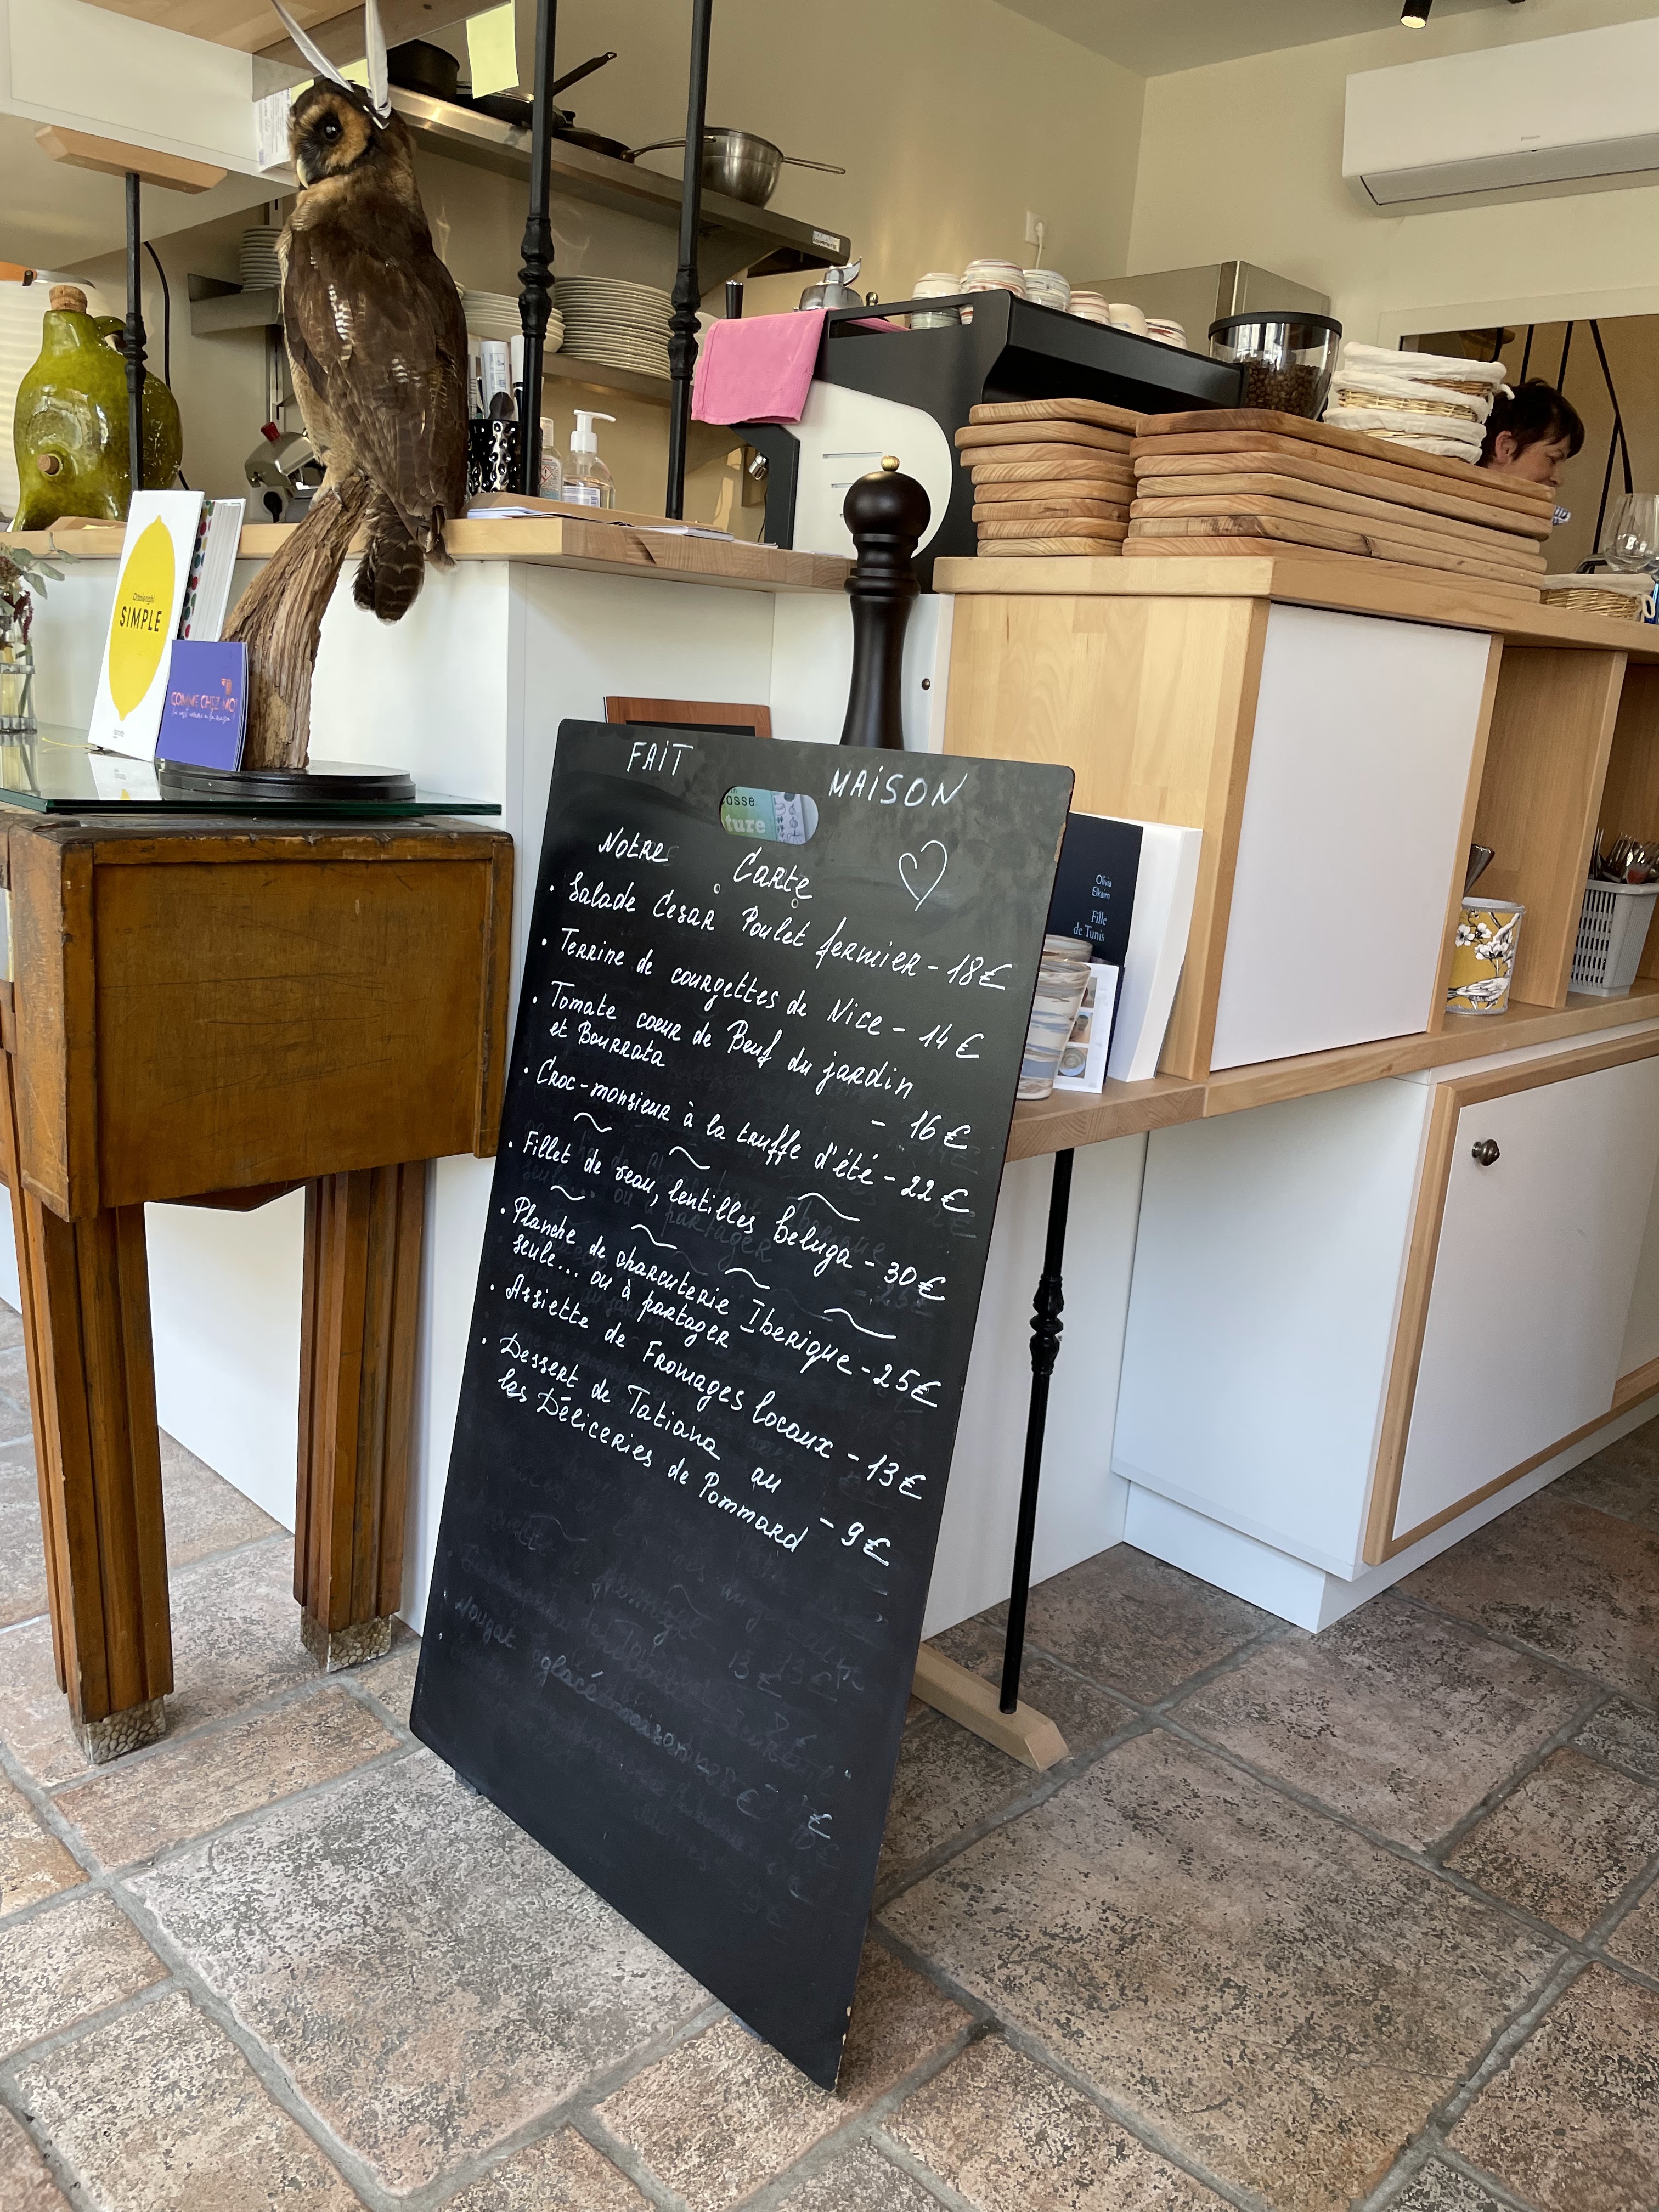 Ottolenghi
SIMPLE
COMME CHEZ MOI
FAIT MAISON
asse
ture
Notre Carte
• Salade Cesar Poulet fermier - 18€
• Terrine de courgettes de Nice - 14€
• Tomate coeur de Beuf du jardin
et Bourrata - 16€
• Croc-monsieur à la truffe d'été - 22€
• Fillet de veau, lentilles beluga - 30€
• Planche de charcuterie Iberique - 25€
seule... ou à partager
• Assiette de Fromages locaux - 13€
• Dessert de Tatiana au
las Déliceries de Pommard - 9€
Nougat glacé maison
Olivia
Elkaim
Fille
de Tunis